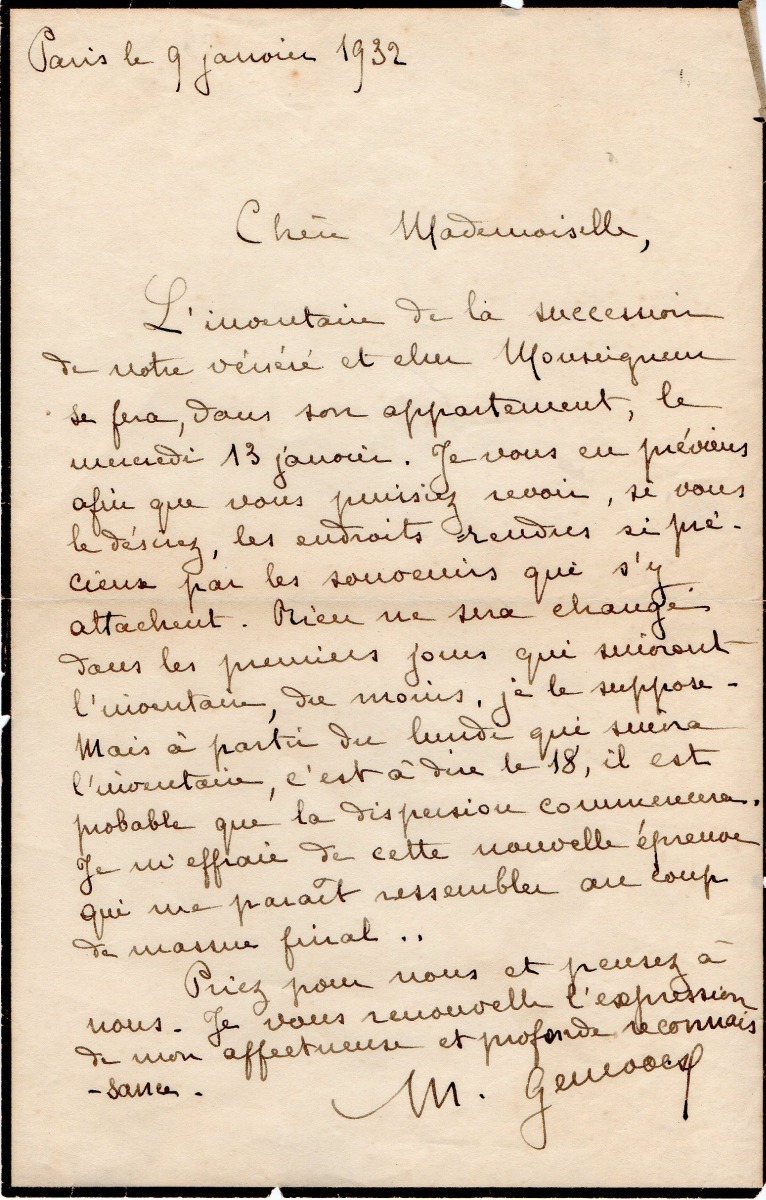 Paris le 9 janvier 1932
Chère Mademoiselle,
L'inventaire de la succession
de notre vénéré et cher Monseigneur
se fera, dans son appartement, le
mercredi 13 janvier. Je vous en préviens
afin que vous puissiez revoir, si vous
le désirez, les endroits rendus si pré-
cieux par les souvenirs qui s'y
attachent. Rien ne sera changé
dans les premiers jours qui suivront
l'inventaire, du moins, je le suppose -
Mais à partir du lundi qui suivra
l'inventaire, c'est à dire le 18, il est
probable que la dispersion commencera.
Je m'effraie de cette nouvelle épreuve
qui me paraît ressembler au coup
de massue final ..
Priez pour nous et pensez à
nous. Je vous renouvelle l'expression
de mon affectueuse et profonde reconnais
-sance.
M.